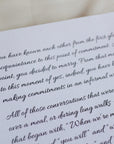 You have known each other from the first gl
acquaintance to this point of commitment.
point, you decided to marry. From that mo
to this moment of yes, indeed, you have b
making commitments in an informal w
All of these conversations that were
over a meal, or during long walks
that began with, "When we're m
"you will" and "